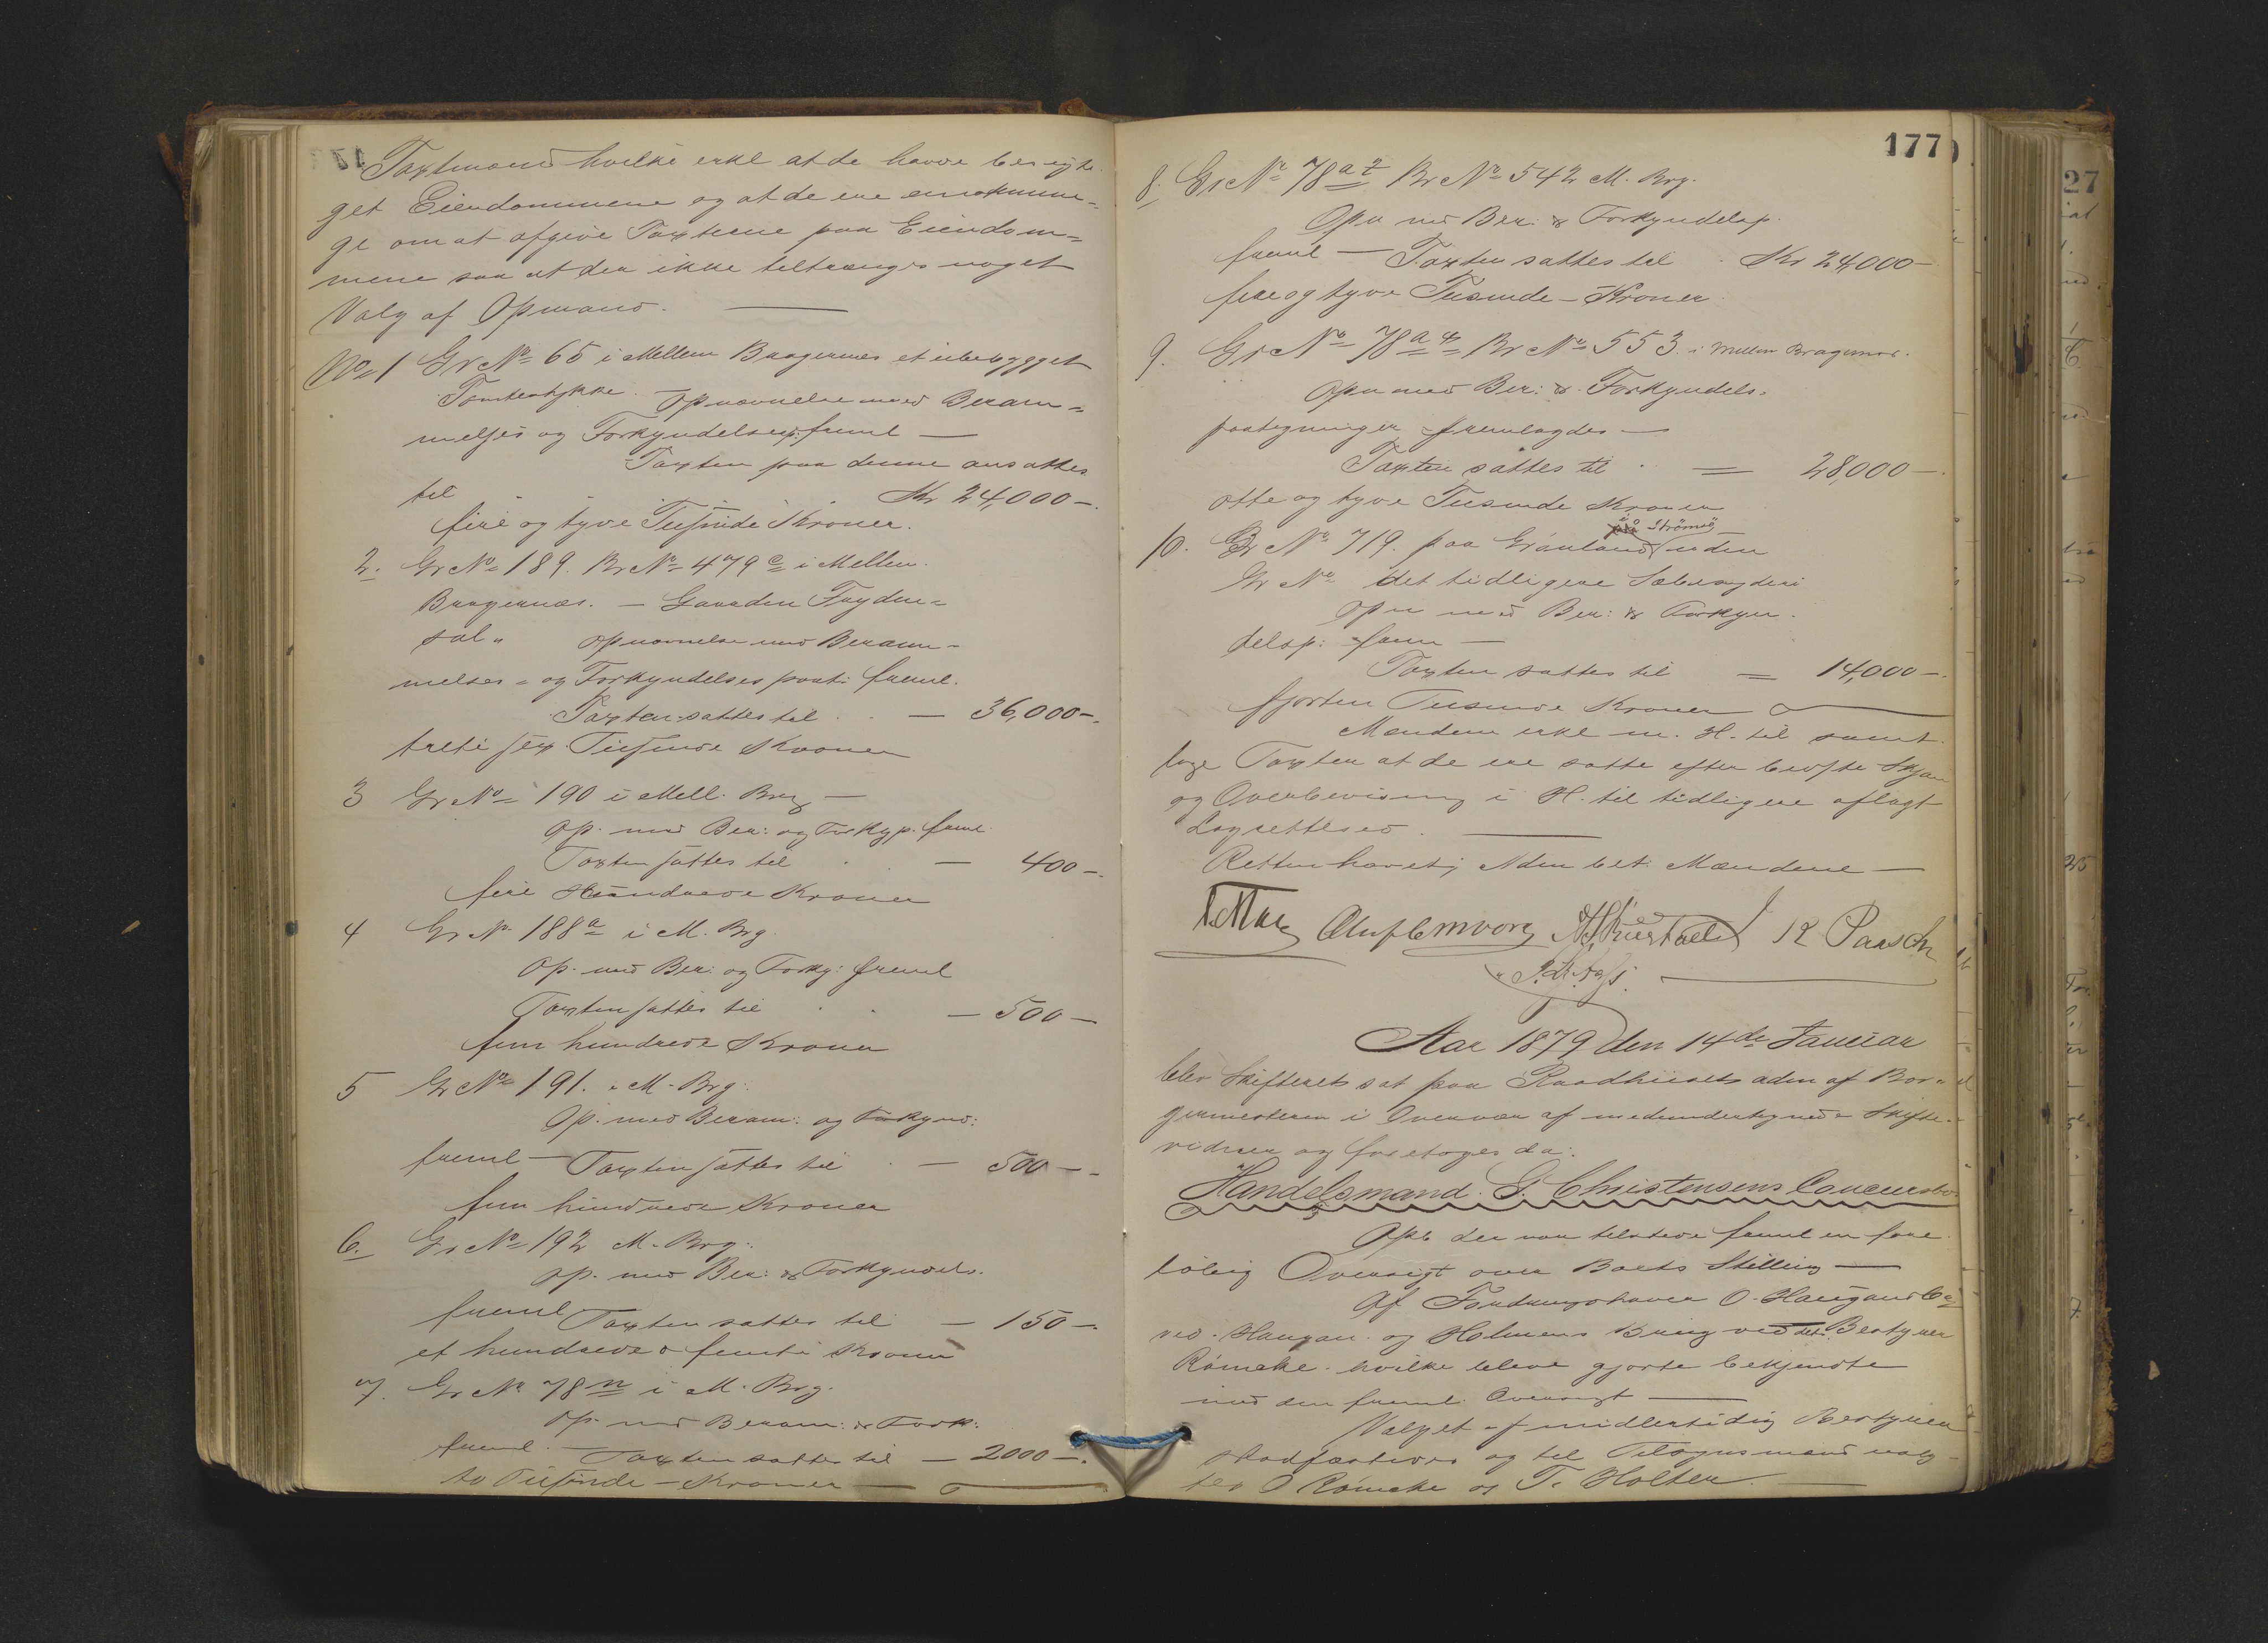 Taxtmænd hvilke erkl at de havve besigti-
get Eiendommene og at de ere enskemme-
ge om at afgive Taxterne paa Eiendom-
mene saa at der ikke tiltrænges noget
Valg af Opmand. —
No 1 Gr No 65 i Mellem Bragernes et ubebygget
Tomtestykke. Opnævnelse med Beram-
melses og Forkyndelsesp: freml —
Taxten paa denne ansattes
til Kr 24,000 —
fire og tyve Tusinde Kroner.
2. Gr No 189. Br No 479 c i Mellem
Bragernæs. — Gaarden Fryden-
sal " opnævnelse med Beram-
melses - og Forkyndelses paat: freml.
Taxten sattes til — 36,000 —.
treti sex Tusinde Kroner
3 Gr No 190 i Mell. Brg —
Op. med Ber: og Forkyp. freml.
Taxten sattes til — 400 —.
fire Hundrede Kroner
4 Gr No 188 a i M. Brg.
Op. med Ber: og Forky: freml
Taxten sattes til — 500 —
fem hundrede Kroner
5 Gr No 191. " M. Brg.
Op. med Beram: og Forkynd:
freml — Taxten sattes til — 500 —
fem hundrede Kroner
6. Gr No 192 M. Brg.
op. med Ber: & Forkyndels.
freml Taxten sattes til — 150 —.
et hundrede & femti Kroner
7. Gr No 78 n i M. Brg.
op. med Beram: & Fork:
freml. — Taxten sattes til — 2000 —.
to Tusinde — Kroner —
177
8. Gr No 78 a Br No 542 M. Brg.
Opn med Ber: & Forkyndelsp.
freml — Taxten sattes til Kr 24,000 —
fire og tyve Tusinde — Kroner
9. Gr No 78 a Br No 553 i Mellem Bragernes.
Opn med Ber: & Forkyndels-
paategninger fremlagdes —
Taxten sattes til = 28,000 —.
otte og tyve Tusinde Kroner
på Strømsø
10. Gr No 719. paa Grønland uden
Gr No det tidligere Sæbesyderi
Opn med Ber: & Forkyn-
delsp: frem —
Taxten sattes til = 14,000 —.
fjorten Tusinde Kroner
Mændene erkl m. H. til samt
lige Taxter at de ere satte efter bedste Skjøn
og Overbevisning i H. til tidligere aflagt
Lagrettesed. —
Retten hævet; Adm bet. Mændene —
R Paasch
Aar 1879 den 14de Januar
blev Skifteret sat paa Raadhuset adm af Bor-
germesteren i Overvær af medundertegnede Skifte-
vidner og foretoges da:
Handelsmand G. Christensens Concursbo
der var tilstede freml en fore
løbig Oversigt over Boets Stilling —
Af Fordringshaver O. Haugan & Co
ved Haugan og Holmens Brug ved dets Bestyrer
Römcke. hvilke bleve gjorte bekjendte
med den freml. Oversigt —
Valget af midlertidig Bestyrer
stadfæstedes og til Tilsynsmænd valg-
tes O Römcke og T. Holter. —